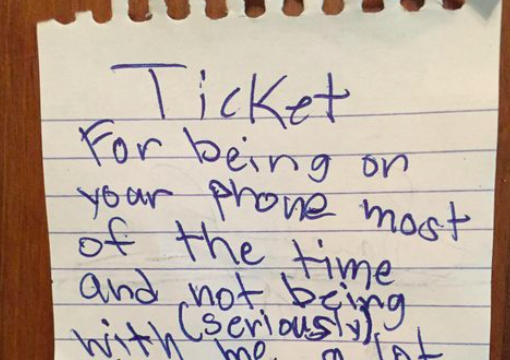 Ticket
For being on
your phone most
of the time
and not being
(seriously)
with me a lot